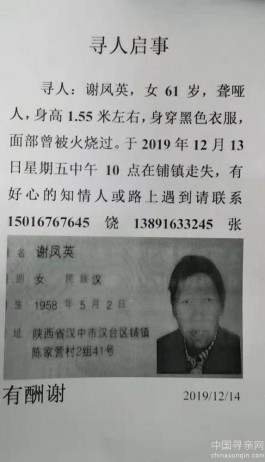 寻人启事
寻人：谢凤英，女 61 岁，聋哑
人，身高 1.55 米左右，身穿黑色衣服，
面部曾被火烧过。于 2019 年 12 月 13
日星期五中午 10 点在铺镇走失，有
好心的知情人或路上遇到请联系
15016767645 饶 13891633245 张
名 谢凤英
别 女 民族 汉
生 1958 年 5 月 2 日
址 陕西省汉中市汉台区铺镇
陈家营村2组41号
有酬谢
2019/12/14
中国寻亲网
chinaxunqin.com